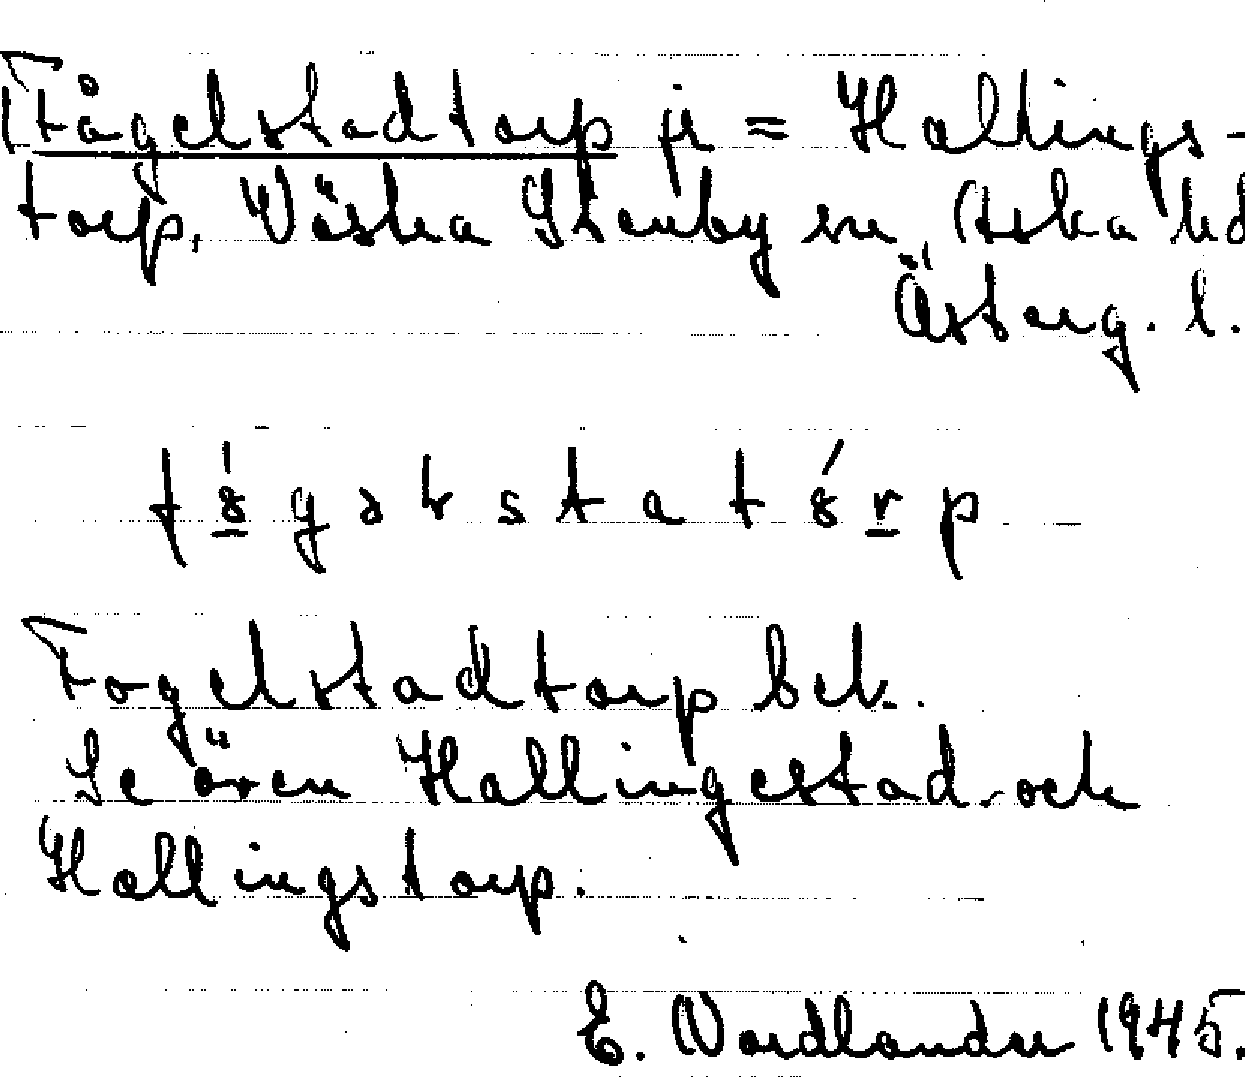 Fågelstadtorp jr = Hallings-
torp, Västra Stenby sn, Aska hd
Österg. l.
Fogelstadtorp bek.
Se även Hallingestad och
Hallingstorp.
E. Nordlander 1945.